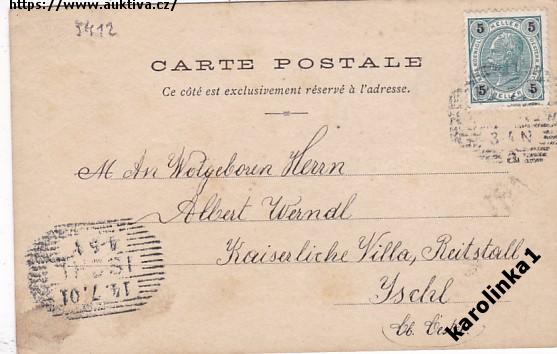 https://www.auktiva.cz/
5412
5 HELLER 5
5 HELLER 5
CARTE POSTALE
Ce côté est exclusivement réservé à l'adresse.
3 4 N
M An Wolgeboren Herrn
Albert Werndl
Kaiserliche Villa, Reitstall
Ischl
14.7.01
karolinka1